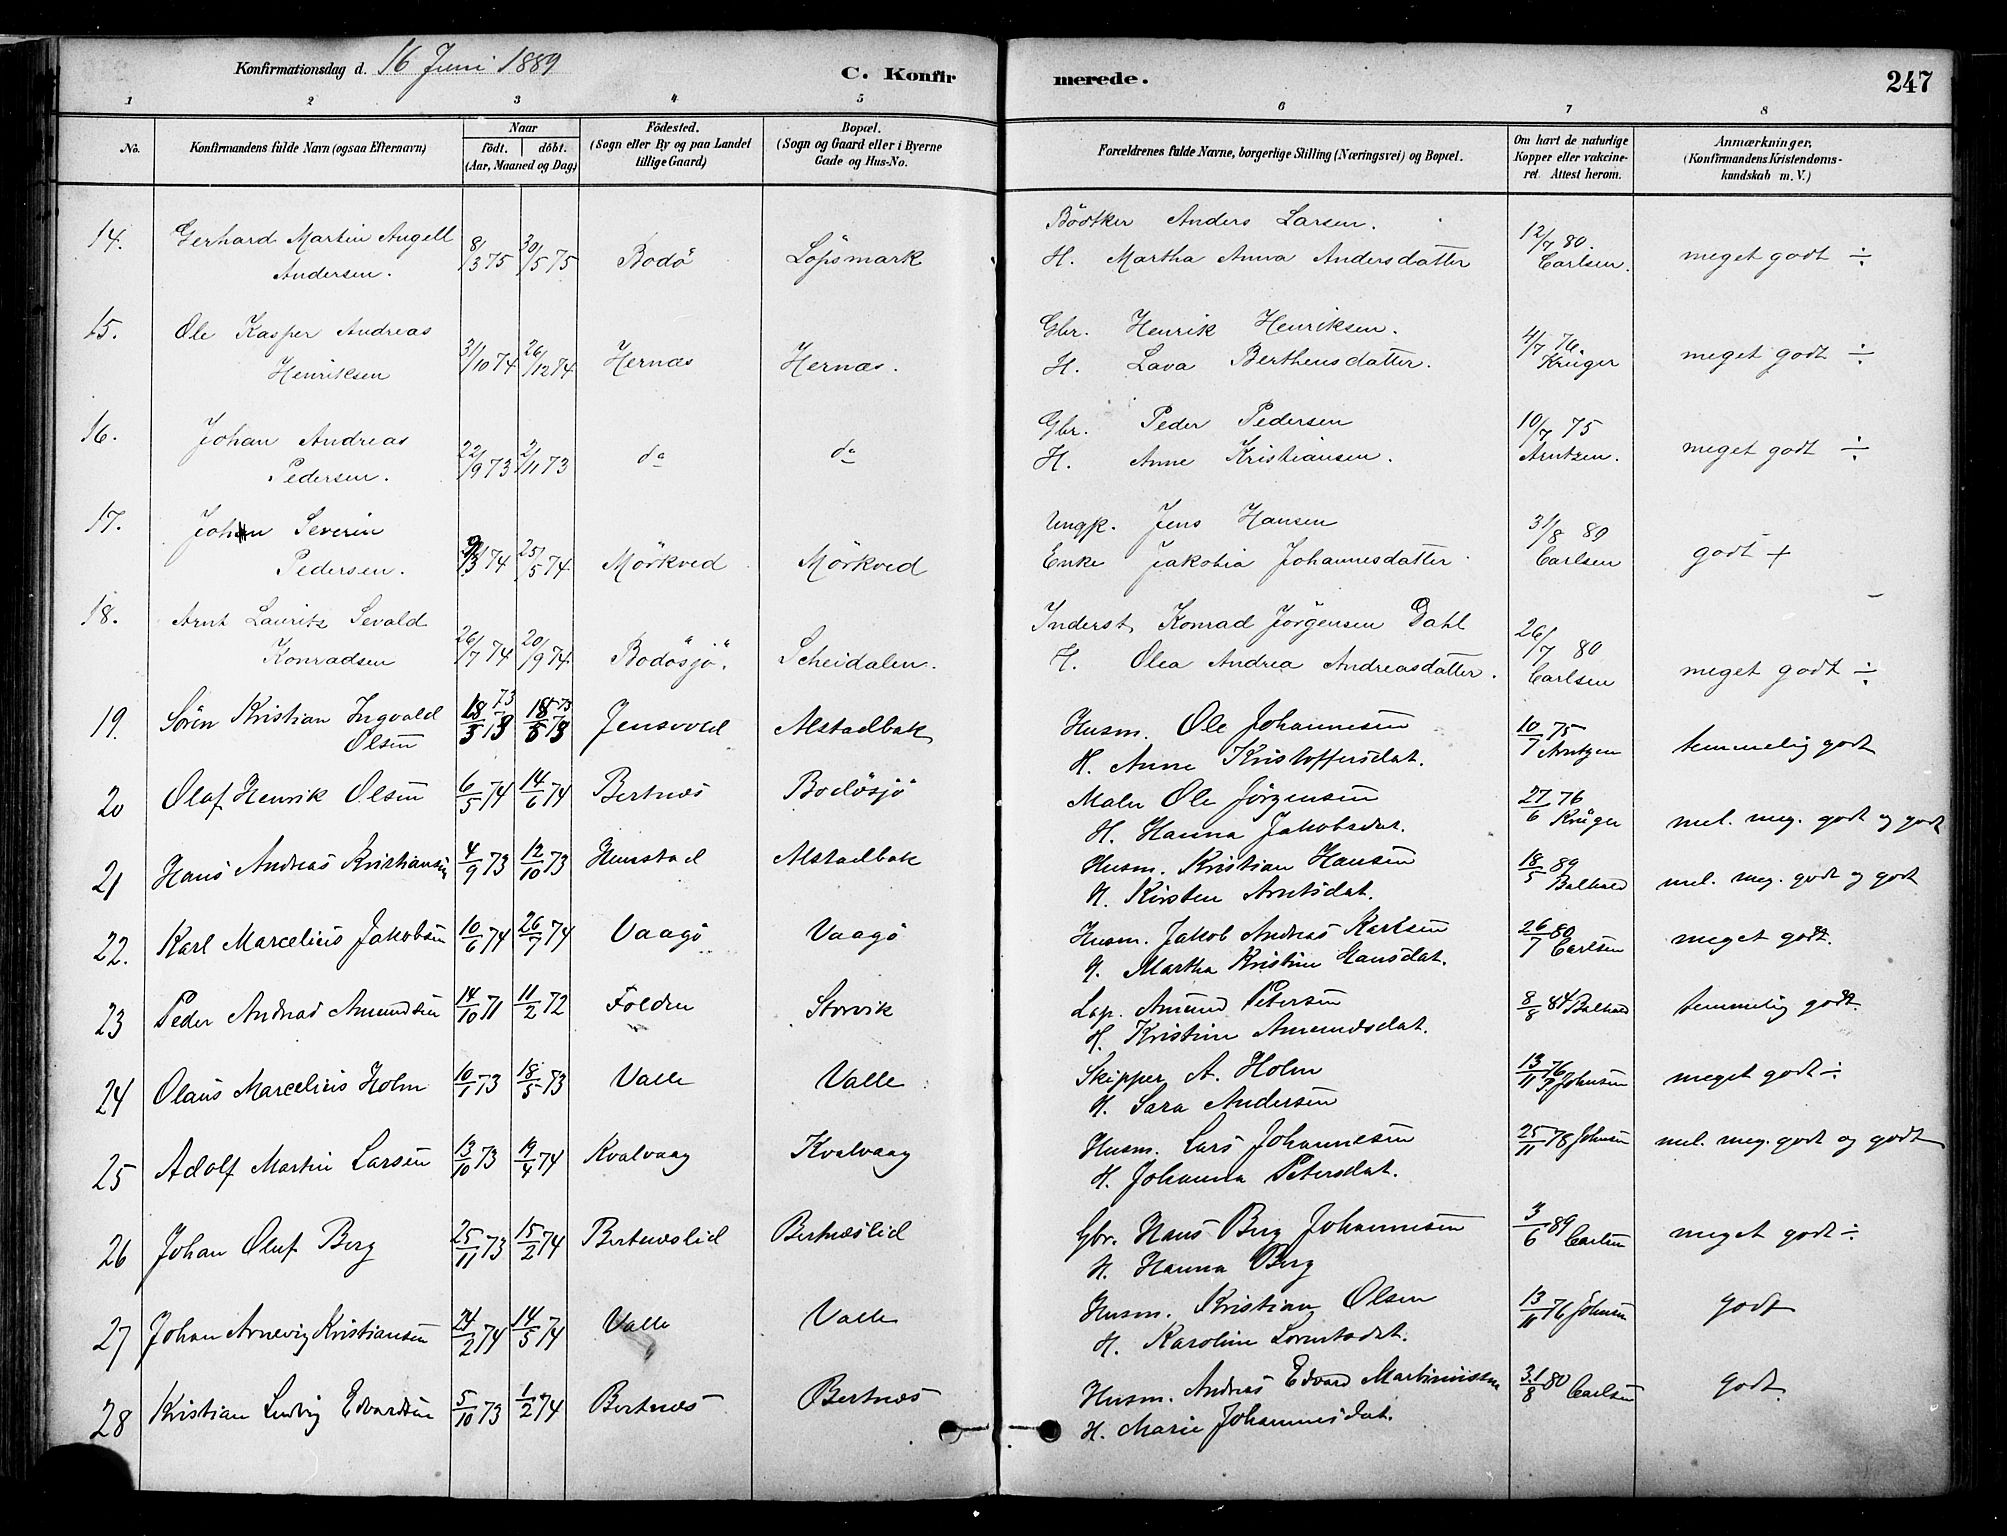 Konfirmationsdag d. 16 Juni 1889
C. Konfirmerede. 247
1 2 3 4 5 6 7 8
No. Konfirmandens fulde Navn (ogsaa Efternavn) Naar födt. döbt. (Aar, Maaned og Dag) Födested. (Sogn eller By og paa Landet tillige Gaard) Bopæl. (Sogn og Gaard eller i Byerne Gade og Hus-No. Forældrenes fulde Navne, borgerlige Stilling (Næringsvei) og Bopæl. Om havt de naturlige Kopper eller vakcineret. Attest herom. Anmærkninger, (Konfirmandens Kristendomskundskab m. V.)
14. Gerhard Martin Angell Bödtker Anders Larsen.
Andersen. 8/3 75 30/5 75 Bodö Löpsmark H. Martha Anna Andersdatter 12/7 80. Carlsen. meget godt ÷
15. Ole Kasper Andreas Gbr. Henrik Henriksen.
Henriksen 31/10 74 26/12 74 Hernæs Hernæs. H. Lava Berthensdatter. 4/7 76. Krüger meget godt ÷
16. Johan Andreas Gbr. Peder Pedersen
Pedersen. 22/9 73 2/11 73 do do H. Anne Kristiansen. 10/7 75 Arntzen. meget godt ÷
17. Johan Severin Ungk. Jens Hansen
Pedersen. 9/3 74 25/5 74 Mörkved Mörkved Enke Jakobia Johannesdatter 31/8 89 Carlsen godt +
18. Arnt Lauritz Sevald Inderst. Konrad Jörgensen Dahl
Konradsen 26/7 74 20/9 74 Bodösjö. Scheidalen. H. Olea Andrea Andreasdatter. 26/7 80 Carlsen meget godt ÷
19. Sören Kristian Ingvald Husm. Ole Johannesen
Olsen 18/3 73 18/5 73 Jensvold Alstadbak H. Anne Kristoffersdat. 10/7 75 Arntzen temmelig godt
20 Olaf Henrik Olsen 6/5 74 14/6 74 Bertnæs Bodösjö Maler Ole Jörgensen 27/6 76 Krüger mel. meg. godt og godt
H. Hanna Jakobsdat.
21 Hans Andreas Kristiansen 4/9 73 12/10 73 Hunstad Alstadbak Husm. Kristian Hansen 18/5 89 Balhald mel. meg. godt og godt
H. Kirsten Arntsdat.
22. Karl Marcelius Jakobsen 10/6 74 26/7 74 Vaagö Vaagö Husm. Jakob Andreas Karlsen 26/7 80 Carlsen meget godt.
H. Martha Kristine Hansdat.
23 Peder Andreas Amundsen 14/10 71 11/2 72 Folden Storvik Lap. Amund Petersen 8/8 84 Balhald temmelig godt.
H. Kristine Amundsdat.
24 Olaus Marcelius Holm 10/1 73 18/5 73 Valle Valle Skipper A. Holm 13/11 76 Johnsen meget godt ÷
H. Sara Andersen
25 Adolf Martin Larsen 13/10 73 19/4 74 Kvalvaag Kvalvaag Husm. Lars Johannesen 25/11 78 Johnsen mel. meg. godt og godt
H. Johanna Petersdat.
26 Johan Oluf Berg 25/11 73 15/2 74 Bertnæslid Bertnæslid Gbr. Hans Berg Johannesen 3/6 89 Carlsen meget godt ÷
H. Hanna Berg
27 Johan Arnevig Kristiansen 24/2 74 14/5 74 Valle Valle Husm. Kristian Olsen 13/11 76 Johnsen godt
H. Karoline
28 Kristian Ludvig Edvardsen 5/10 73 1/2 74 Bertnæs Bertnæs Husm. Andreas Edvard Martinussen 31/8 80 Carlsen godt
H. Marie Johannesdat.